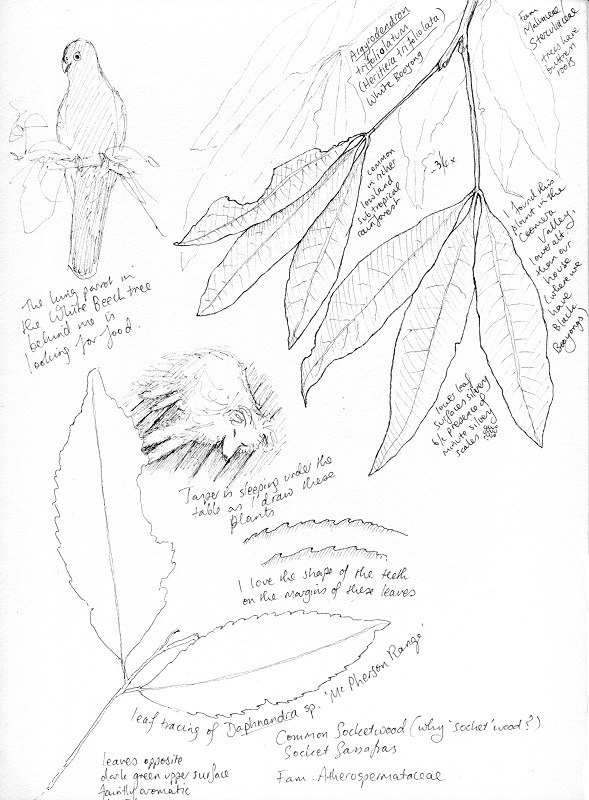 Argyrodendron
trifoliolatum
(Heritiera trifoliolata)
White Booyong
Fam
Malvaceae/
Sterculiaceae
trees have
buttress
roots
common
in richer
lowland
subtropical
rainforest
I found this
plant in the
Coomera
Valley,
lower alt.
than our
house
(where we
have
Black
Booyongs)
lower leaf
surfaces silvery
b/c presence of
minute silvery
scales
The king parrot in
the White Beech tree
behind me is
looking for food.
Jasper is sleeping under the
table as I draw these
plants
I love the shape of the teeth
on the margins of these leaves
leaf tracing of Daphnandra sp. 'McPherson Range'
Common Socketwood (why 'socket' wood?)
Socket Sassafras
Fam. Atherospermataceae
leaves opposite
dark green upper surface
faintly aromatic